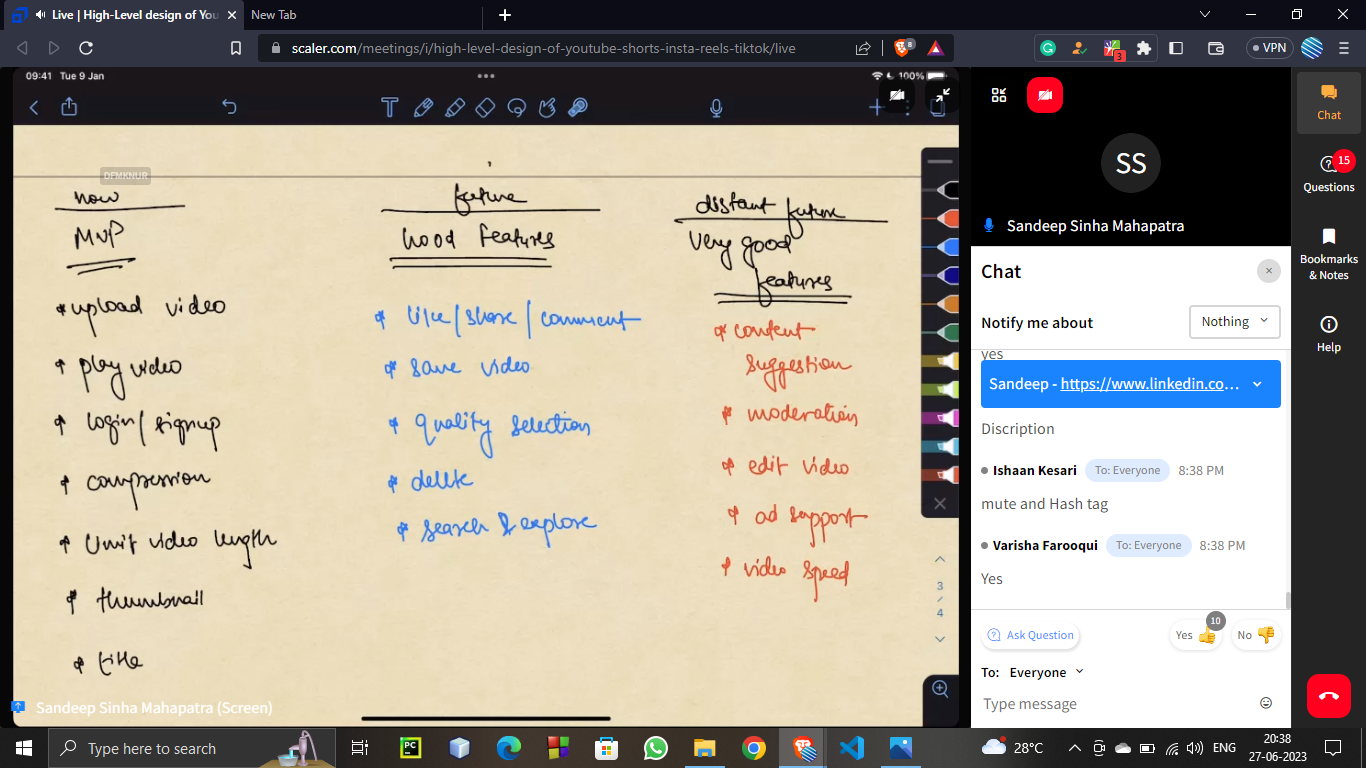 Live | High-Level design of You
New Tab
scaler.com/meetings/i/high-level-design-of-youtube-shorts-insta-reels-tiktok/live
8
3
VPN
09:41 Tue 9 Jan
100%
DFMKNUR
now
MVP
*upload video
* play video
* login/signup
* compression
* limit video length
* thumbnail
* title
future
Good features
* like/share/comment
* save video
* quality selection
* delete
* search & explore
distant future
very good
features
* content
suggestion
* moderation
* edit video
* ad support
* video speed
3
/
4
Sandeep Sinha Mahapatra (Screen)
SS
Sandeep Sinha Mahapatra
Chat
Notify me about
Nothing
yes
Sandeep - https://www.linkedin.co...
Discription
Ishaan Kesari To: Everyone 8:38 PM
mute and Hash tag
Varisha Farooqui To: Everyone 8:38 PM
Yes
Ask Question
Yes
10
No
To: Everyone
Type message
Chat
15
Questions
Bookmarks
& Notes
Help
Type here to search
PC
28°C
ENG
20:38
27-06-2023